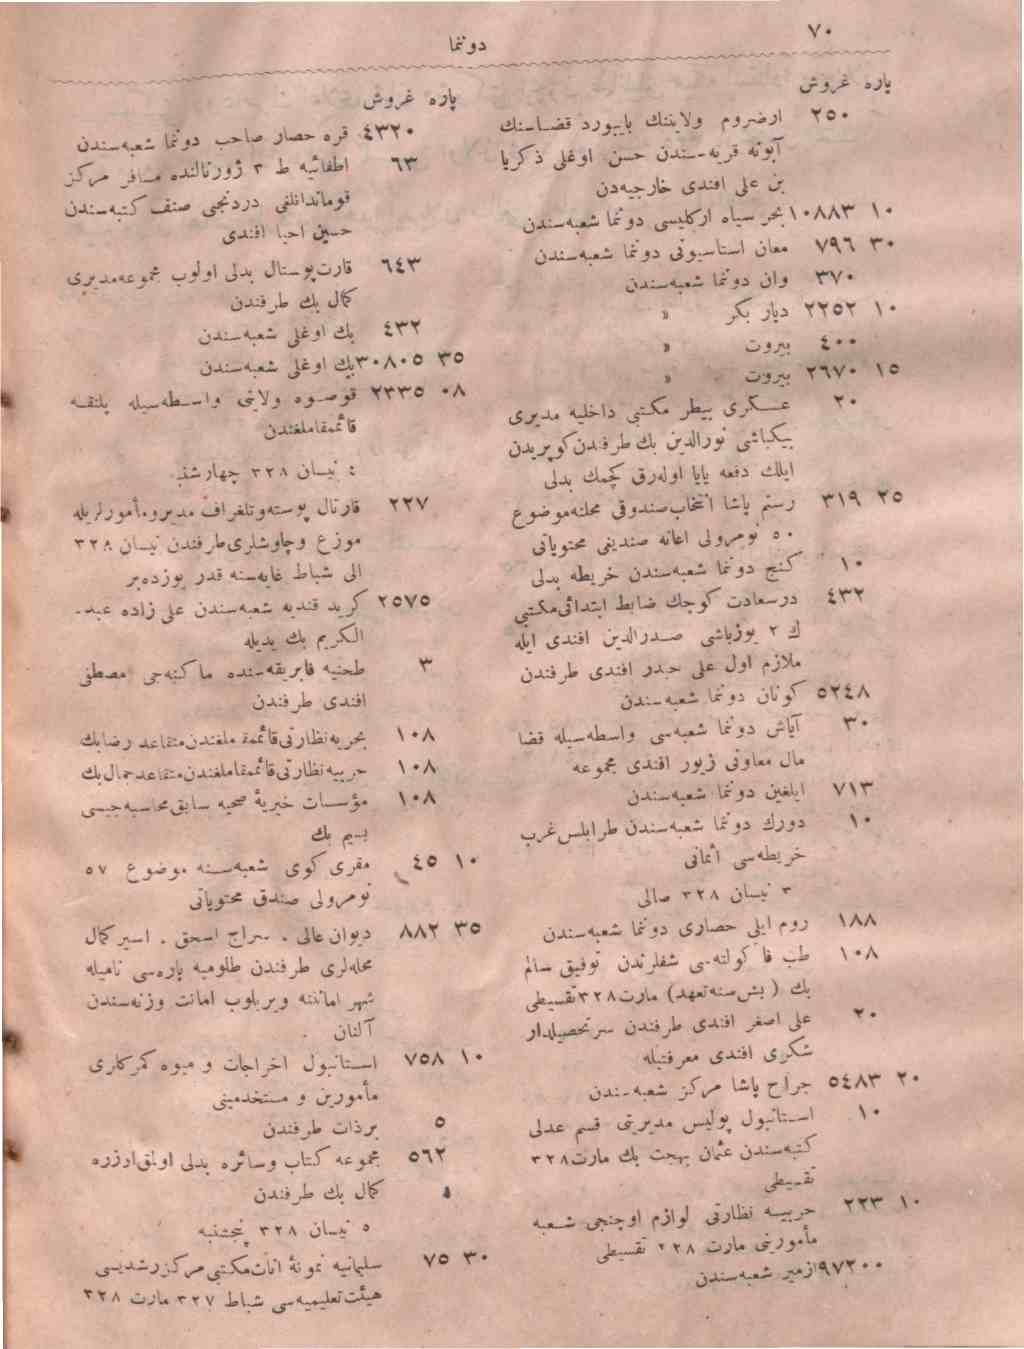 ٧٠
دوننما
پاره غروش
٢٥٠ ارضروم ولايتنك بايبورد قضاسنك
آيونه قريه‌سندن حسن اوغلى ذكريا
بن على افندى خارجيه‌دن
١٠ ١٠٨٨٣ بحر سياه اركليسى دوننما شعبه‌سندن
٣٠ ٧٩٦ معان استاسيونى دوننما شعبه‌سندن
٣٧٠ وان دوننما شعبه‌سندن
١٠ ٢٢٥٢ ديار بكر »
٤٠٠ بيروت »
١٥ ٢٦٧٠ بيروت »
٢٠ عسكرى بيطر مكتبى داخليه مديرى
بيكباشى نورالدين بك طرفندن كوپريدن
ايلك دفعه يايا اوله‌رق كچمك بدلى
٢٥ ٣١٩ رستم پاشا انتخاب صندوقى محلنه موضوع
٥٠ نومرولى اعانه صنديغى محتوياتى
١٠ كنج دوننما شعبه‌سندن خريطه بدلى
٤٣٢ درسعادت كوچك ضابط ابتدائى مكتبى
ك ٢ يوزباشى صدرالدين افندى ايله
ملازم اول على حيدر افندى طرفندن
٥٢٤٨ كونان دوننما شعبه‌سندن
٣٠ آياش دوننما شعبه‌سى واسطه‌سيله قضا
مال معاونى زيور افندى مجموعه
٧١٣ ايلغين دوننما شعبه‌سندن
١٠ دورك دوننما شعبه‌سندن طرابلس غرب
خريطه‌سى اثمانى
٣ نيسان ٣٢٨ صالى
١٨٨ روم ايلى حصارى دوننما شعبه‌سندن
١٠٨ طب فاكولته‌سى شفلرندن توفيق سالم
بك (بش سنه تعهد) مارت ٣٢٨ تقسيطى
٢٠ على اصغر افندى طرفندن سرتحصيلدار
شكرى افندى معرفتيله
٢٠ ٥٤٨٣ جراح پاشا مركز شعبه‌سندن
١٠ استانبول پوليس مديريتى قسم عدلى
كتبه‌سندن عثمان بهجت بك مارت ٣٢٨
تقسيطى
١٠ ٢٢٣ حربيه نظارتى لوازم اوچنجى شعبه
مأمورينى مارت ٣٢٨ تقسيطى
٩٧٢٠٠ ازمير شعبه‌سندن
پاره غروش
٤٣٢٠ قره حصار صاحب دوننما شعبه‌سندن
٦٣ اطفائيه ط ٣ ژورنالنده مسافر مركز
قوماندانلغى دردنجى صنف كتبه‌سندن
حسين احيا افندى
٦٤٣ قارت پوستال بدلى اولوب مجموعه مديرى
كمال بك طرفندن
٤٣٢ بك اوغلى شعبه‌سندن
٣٥ ٣٠٨٠٥ بك اوغلى شعبه‌سندن
٠٨ ٢٣٣٥ قوصوه ولايتى واسطه‌سيله پلنقه
قائممقاملغندن
٤ نيسان ٣٢٨ چهارشنبه
٢٢٧ قارتال پوسته و تلغراف مدير و مأمورلريله
موزع و چاوشلرى طرفندن نيسان ٣٢٨
الى شباط غايه‌سنه قدر يوزده بر
٢٥٧٥ كريد قنديه شعبه‌سندن على زاده عبد
الكريم بك يديله
٣ طحنيه فابريقه‌سنده ماكنه‌جى مصطفى
افندى طرفندن
١٠٨ بحريه نظارتى قائممقاملغندن متقاعد رضا بك
١٠٨ حربيه نظارتى قائممقاملغندن متقاعد جمال بك
١٠٨ مؤسسات خيريۀ صحيه سابق محاسبه‌جيسى
بسيم بك
١٠ ٤٥ مقرى كوى شعبه‌سنه موضوع ٥٧
نومرولى صندق محتوياتى
٣٥ ٨٨٢ ديوان عالى . سراج اسحق . اسير كمال
محله‌لرى طرفندن طلومبه پاره‌سى ناميله
شهر امانتنه ويريلوب امانت وزنه‌سندن
آلنان .
١٠ ٧٥٨ استانبول اخراجات و ميوه كمركلرى
مأمورين و مستخدمينى
٥ برذات طرفندن
٥٦٢ مجموعه كتاب وسائره بدلى اولمق اوزره
كمال بك طرفندن
٥ نيسان ٣٢٨ پنجشنبه
٣٠ ٧٥ سليمانيه نمونۀ اناث مكتبى مركز رشديسى
هيئت تعليميه‌سى شباط ٣٢٧ مارت ٣٢٨